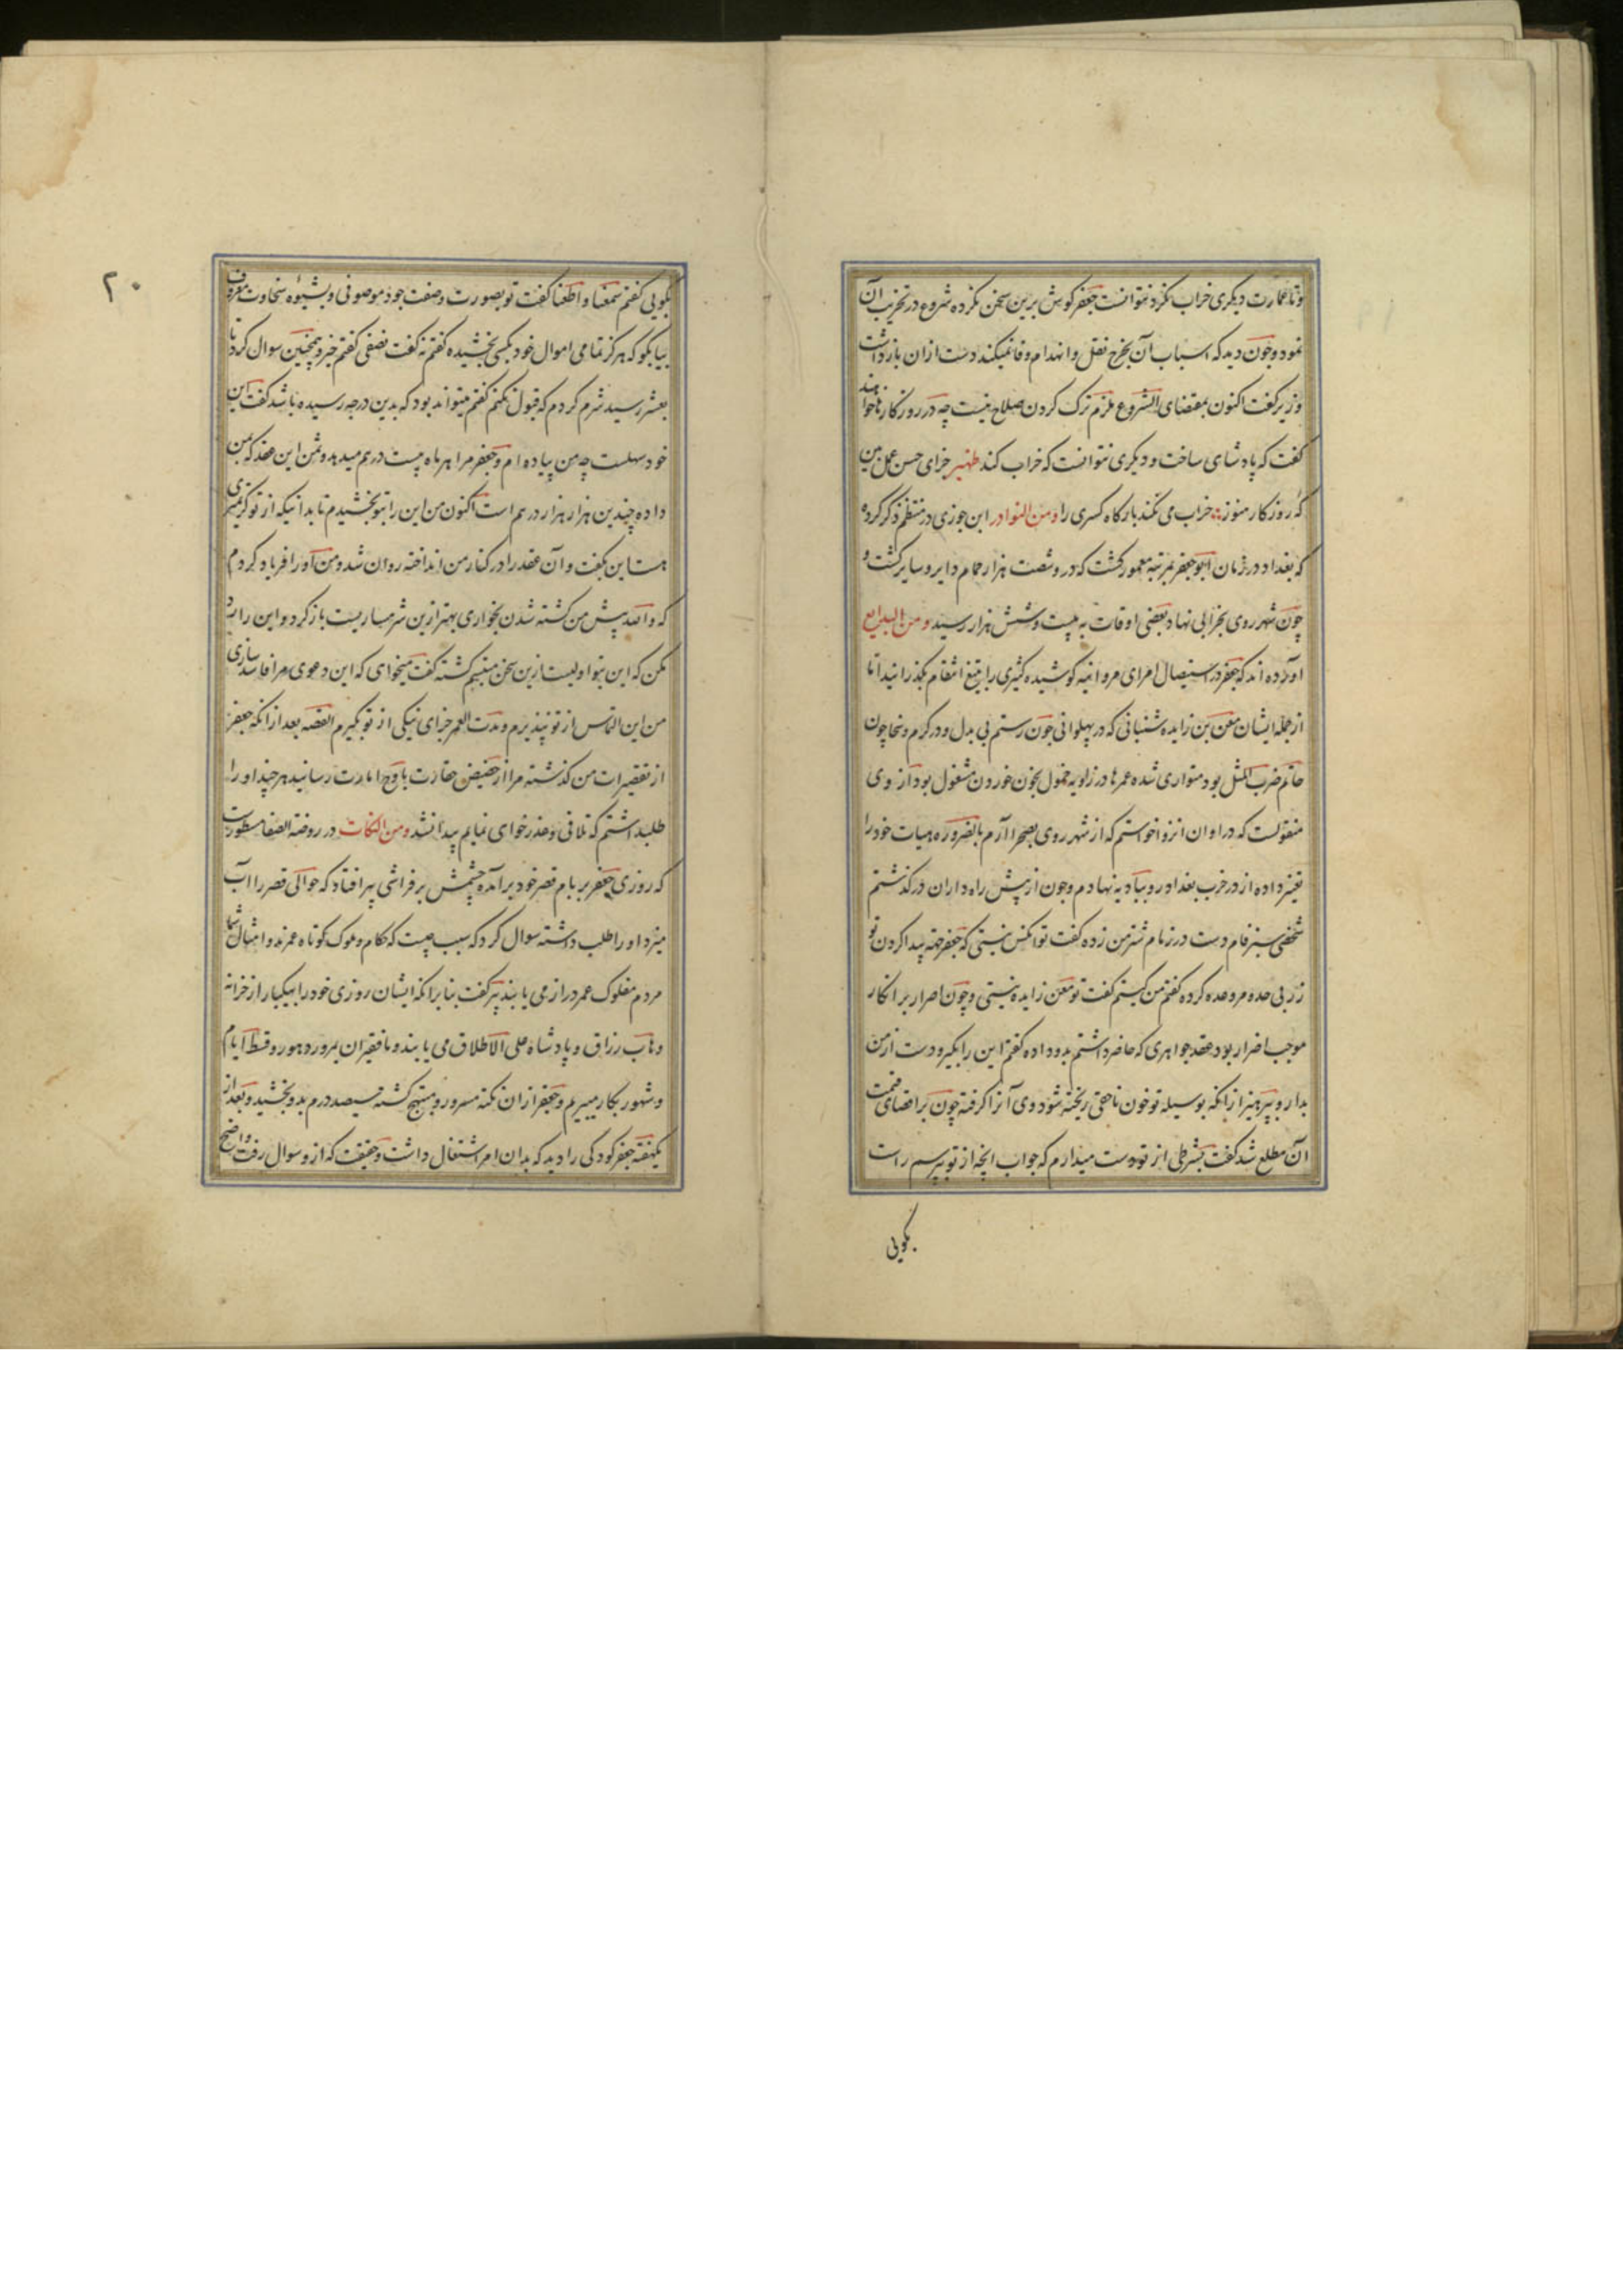 و تا عمارت دیگری خراب نکرد نتوانست جعفر گوش برین سخن نکرده شروع در تخریب آن
نمود و چون دید که اسباب آن بخرج نقل و انهدام وفا نمیکند دست از ان باز داشت
وزیر گفت اکنون بمقتضای الشروع ملزم ترک کردن صلاح نیست چه در روزکار ناخواهند
گفت که پادشای ساخت و دیگری نتوانست که خراب کند ظهیر جزای حسن عمل بین
که روزکار هنوز خراب می نکند بارکاه کسری را و من النوادر ابن جوزی در منتظم ذکر کرده
که بغداد در زمان ابو جعفر بمرتبه معمور کشت که درو شصت هزار حمام دایر و سایر کشت و
چون شهر روی بخرابی نهاد بعضی اوقات به بیست و شش هزار رسید و من البدایع
آورده اند که جعفر در استیصال امرای مروانیه کوشیده کثیری را بتیغ انتقام بکذرانید اما
از جمله ایشان معن بن زایده شنبانی که در پهلوانی چون رستم بی بدل و در کرم و سخا چون
حاتم ضرب المثل بود متواری شده عمرها در زاویه خمول بخون خوردن مشغول بود از وی
منقولست که در اوان انزوا خواستم که از شهر روی بصحرا آرم بالضروره هیات خود را
تغییر داده از در حرب بغداد رو بباد یه نهادم و چون از پیش راه داران در کذشتم
شخصی سبز فام دست در زمام شتر من زده گفت تو آنکس نیستی که جعفر جهة پیدا کردن تو
زر بی حد و مر وعده کرده گفتم من کیستم گفت تو معن زایده نیستی و چون اصرار بر انکار
موجب اضرار بود عقد جواهری که حاضر داشتم بدو داده گفتم این را بگیر و دست از من
بدار و بپرهیز از انکه بوسیله تو خون ناحقی ریخته شود وی آنرا گرفته چون بر اقصای قیمت
آن مطلع شد گفت بشرطی از تو دست میدارم که جواب انچه از تو پرسم راست
بگویی
۲۰
بگویی گفتم سمعنا و اطعنا گفت تو بصورت و صفت جود موصوفی و بشیوه سخاوت معروف
بیا بگو که هرگز تمامی اموال خود بکسی بخشیده گفتم نه گفت نصفی گفتم خیر و همچنین سوال کرد تا
بعشر رسید شرم کردم که قبول نکنم گفتم میتواند بود که بدین درجه رسیده باشد گفت این
خود سهلست چه من پیاده ام و جعفر مرا هر ماه بیست درهم میدهد و ثمن این عقد که بمن
داده چندین هزار هزار درهم است اکنون من این را بتو بخشیدم تا بدانیکه از تو کریمتری
هست این بگفت و آن عقد را در کنار من انداخته روان شد و من او را فریاد کردم
که والله پیش من کشته شدن بخواری بهتر ازین شرمساریست باز کرد و این را رد
مکن که این بتو اولیست ازین سخن متبسم کشته گفت میخوای که این دعوی مرا فاسد سازی
من این التماس از تو نپذیرم و مدت العمر جزای نیکی از تو نکیرم القصه بعد از انکه جعفر
از تقصیرات من کذشته مرا از حضیض حقارت باوج امارت رسانید هر چند او را
طلبداشتم که تلافی و عذر خوای نمایم پیدا نشد و من النکات در روضة الصفا مسطورست
که روزی جعفر بر بام قصر خود برامده چشمش بر فراشی پیر افتاد که حوالی قصر را آب
میزد او را طلب داشته سوال کرد که سبب چیست که حکام و ملوک کوتاه عمرند و امثال شما
مردم مفلوک عمر دراز می یابند پیر گفت بنابرانکه ایشان روزی خود را بیکبار از خزانه
وهاب رزاق و پادشاه علی الاطلاق می یابند و ما فقیران بمرور دهور و قسط ایام
و شهور بکار میبریم و جعفر ازان نکته مسرور و مبتهج کشته سیصد درم بدو بخشید و بعد از
یکهفته جعفر کودکی را دید که بدان امر اشتغال داشت و حقیقت که ازو سوال رفت واضح